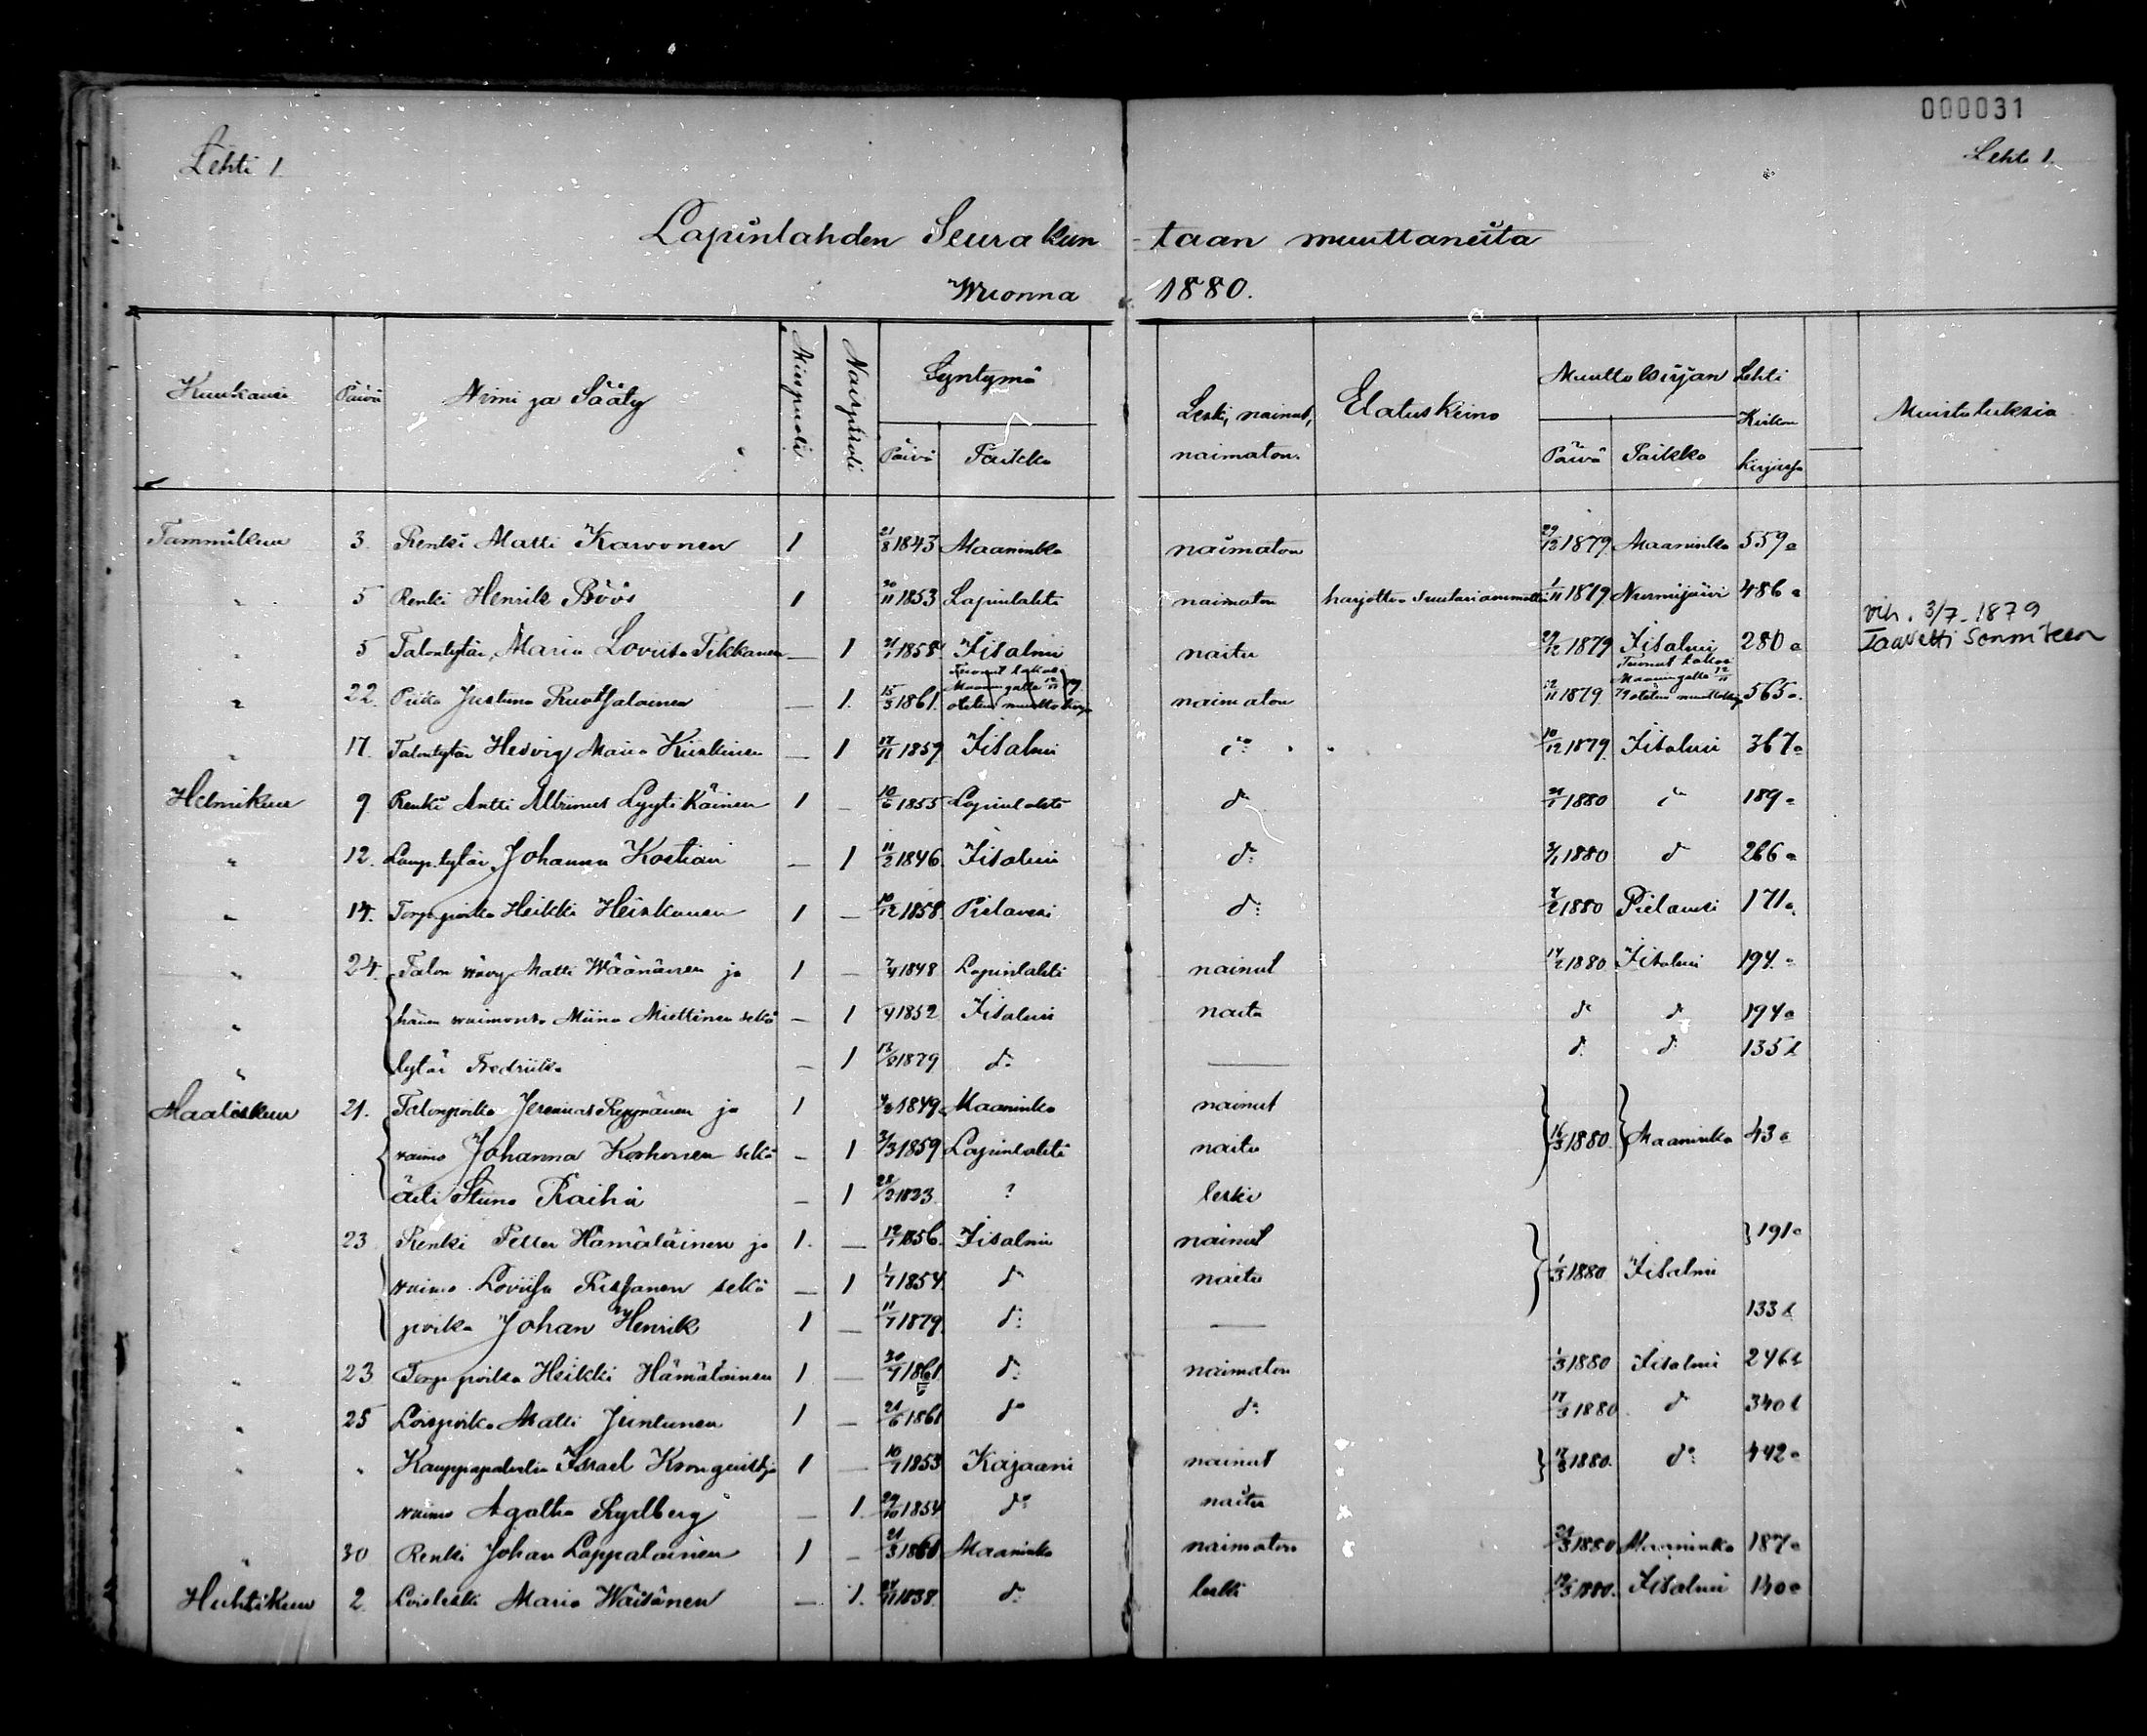 000031
Lehti 1. Lehti 1.
Lapinlahden Seurakun-taan muuttaneita
Wuonna 1880.
Kuukausi Päivä Nimi ja Sääty Miespuoli Naispuoli Syntymä Leski, nainut, naimaton. Elatuskeino Muuttokirjan Lehti Kirkon kirjassa Muistutuksia
Päivä Paikka Päivä Paikka
Tammikuu 3. Renki Matti Karvonen 1 21/8 1843 Maaninka naimaton 29/12 1879 Maaninka 559 a
" 5 Renki Henrik Böös 1 30/11 1853 Lapinlahti naimaton harjottaa suutariammattia 1/11 1879 Nurmijärvi 486 a
" 5 Talontytär, Maria Loviisa Tikkanen — 1 1858 Iisalmi naitu 29/12 1879 Iisalmi 280 a vih. 3/7-1879
Taavetti Sonninen
" 22. Piika Justiina Ruotsalainen — 1. 15/3 1861. naimaton 12/11 1879. 565 a.
" 17. Talontytär Hedvig Maria Kiiskinen — 1 17/11 1859 Iisalmi d:o 10/12 1879. Iisalmi 367 a
Helmikuu 9. Renki Antti Albinus Lyytikäinen 1 — 10/6 1855 Lapinlahti d:o 1880 d:o 189 a
" 12. Lamp.tytär Johanna Kostian — 1 11/2 1846. Iisalmi d:o 1880 d:o 266 a
" 14. Torp.poika Heikki Heiskanen 1 — 10/12 1858. Pielavesi d:o 1880 Pielavesi 171 a
" 24. Talon vävy Matti Wäänänen ja 1 — 1848 Lapinlahti nainut 1880 Iisalmi 194 a
" hänen vaimonsa Miina Miettinen sekä — 1 1852 Iisalmi naitu d:o d:o 194 a
" tytär Fredriika — 1 1879 d:o — d:o d:o 135 b
Maaliskuu 21. Talonpoika Jeremias Ryynänen ja 1 1849 Maaninka nainut
vaimo Johanna Korhonen sekä — 1 3/3 1859 Lapinlahti naitu 16/3 1880. Maaninka 43 a
äiti Stiina Räihä — 1 1823 ? leski
" 23 Renki Petter Hämäläinen ja 1. — 1856. Iisalmi nainut 191 a
vaimo Loviisa Rissanen sekä — 1 1/7 1854 d:o naitu 1/3 1880 Iisalmi
poika Johan Henrik 1 — 11/7 1879 d:o — 133 b
" 23 Torp.poika Heikki Hämäläinen 1 — 1861 d:o naimaton 1/3 1880 Iisalmi 246 b
" 25 Loispoika Matti Juntunen 1 — 21/6 1861 d:o d:o 17/3 1880 d:o 340 b
" " Kauppapalvelia Israel Kronqvist ja 1 — 1853 Kajaani nainut 1880. d:o 442 a
vaimo Agatha Rydberg — 1. 29/10 1854 d:o naitu
" 30 Renki Johan Lappalainen 1 — 21/3 1860 Maaninka naimaton 1880 Maaninka 187 a
Huhtikuu 2. Loisleski Maria Wäisänen — 1. 1838. d:o leski 1880. Iisalmi 140 a